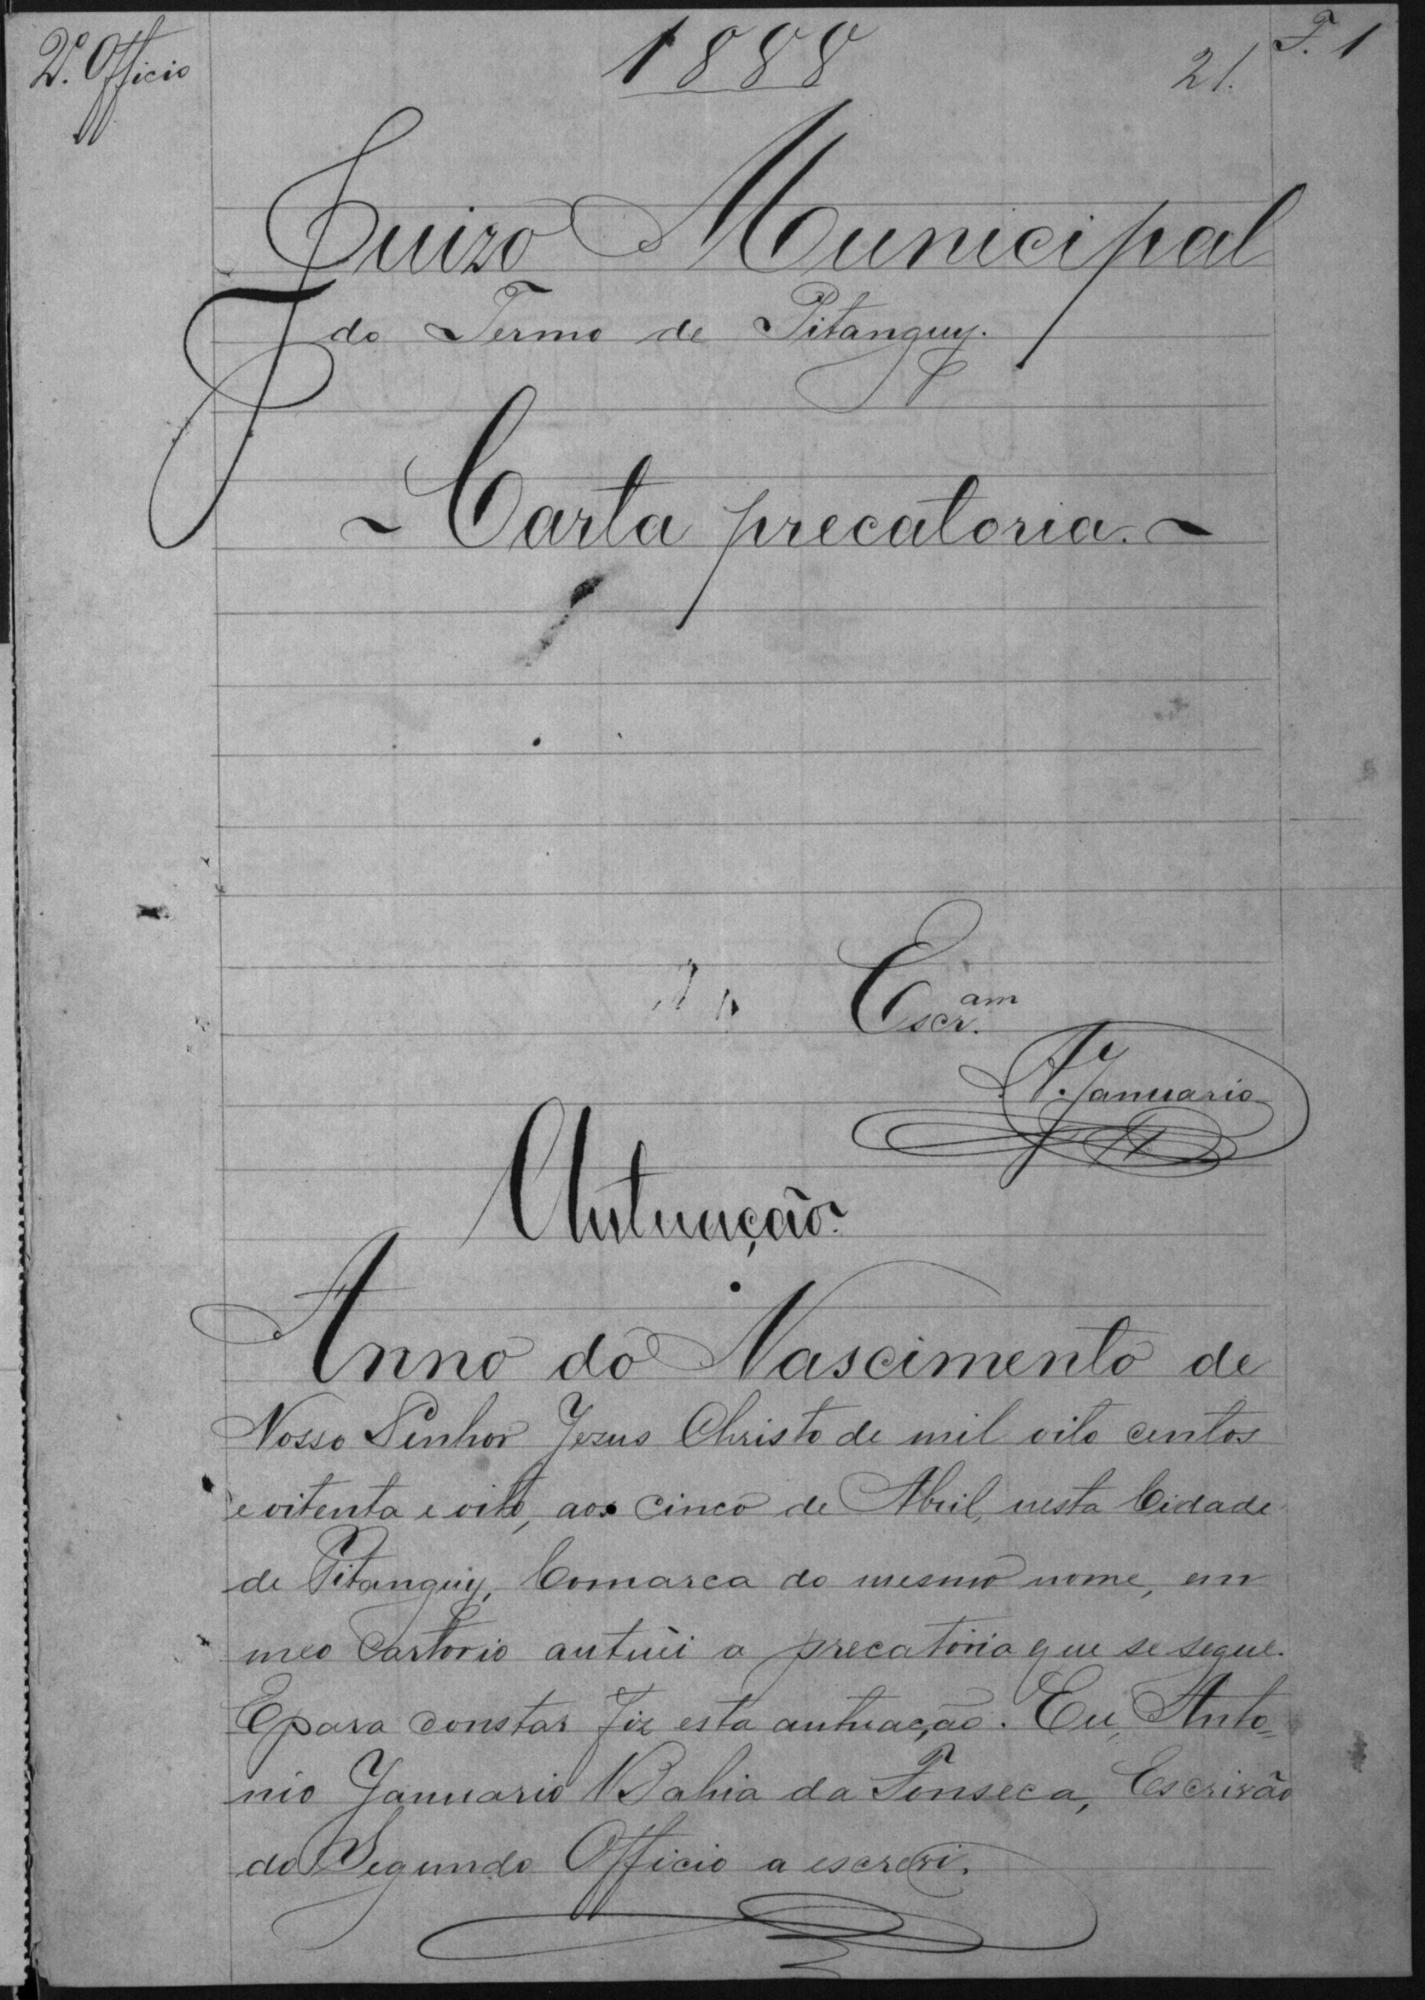 2º. Officio
1888
21.
F. 1
Juizo Municipal
do Termo de Pitanguy.
~ Carta precatoria. ~
Escr.am
A. Januario
Autuação.
Anno do Nascimento de
Nosso Senhor Jezus Christo de mil oito centos
e oitenta e oito, aos cinco de Abril, nesta Cidade
de Pitanguy, Comarca do mesmo nome, em
meo Cartorio autuei a precatoria que se segue.
E para constar fiz esta autuação. Eu, Anto=
nio Januario Bahia da Fonseca, Escrivão
do Segundo Officio a escrevi.